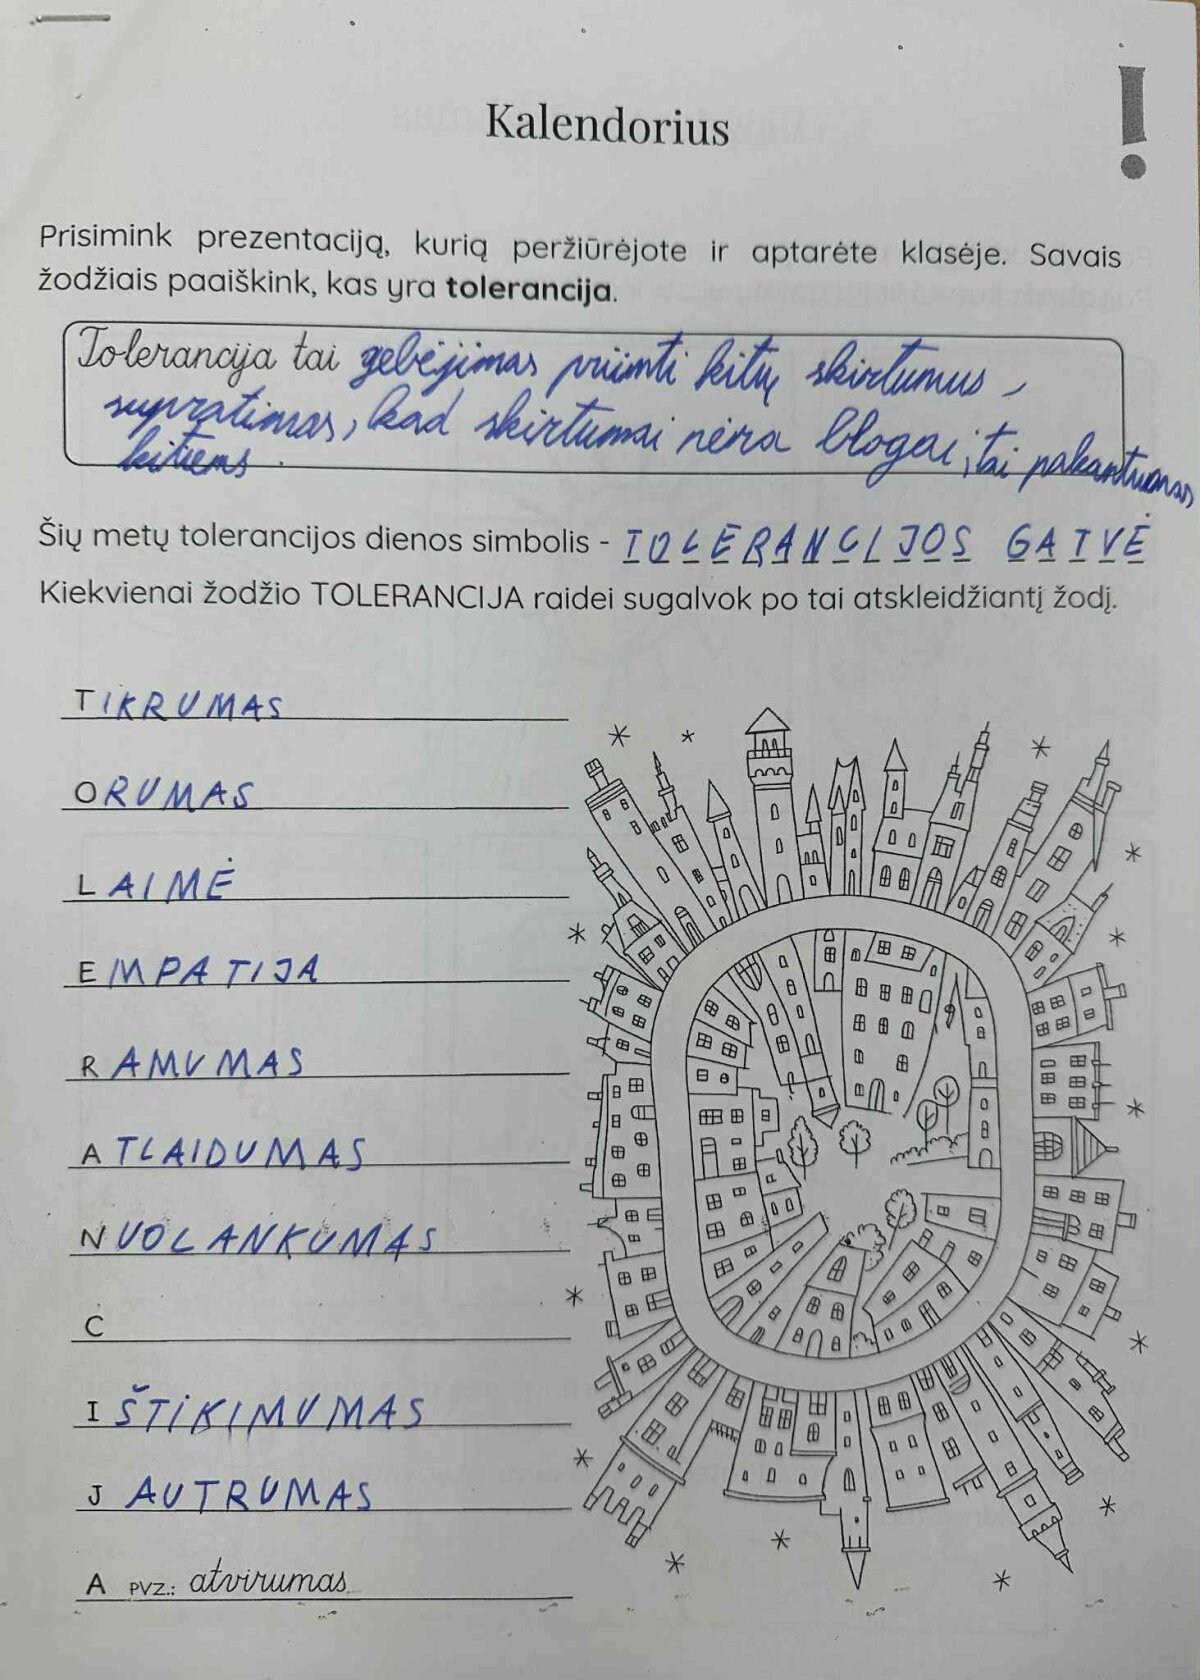 Kalendorius
!
Prisimink prezentaciją, kurią peržiūrėjote ir aptarėte klasėje. Savais
žodžiais paaiškink, kas yra tolerancija.
Tolerancija tai gebėjimas priimti kitų skirtumus,
supratimas, kad skirtumai nėra blogai, tai pakantumas
kitiems.
Šių metų tolerancijos dienos simbolis - TOLERANCIJOS GATVĖ
Kiekvienai žodžio TOLERANCIJA raidei sugalvok po tai atskleidžiantį žodį.
TIKRUMAS
ORUMAS
LAIMĖ
EMPATIJA
RAMUMAS
ATLAIDUMAS
NUOLANKUMAS
C
IŠTIKIMUMAS
JAUTRUMAS
A PVZ.: atvirumas